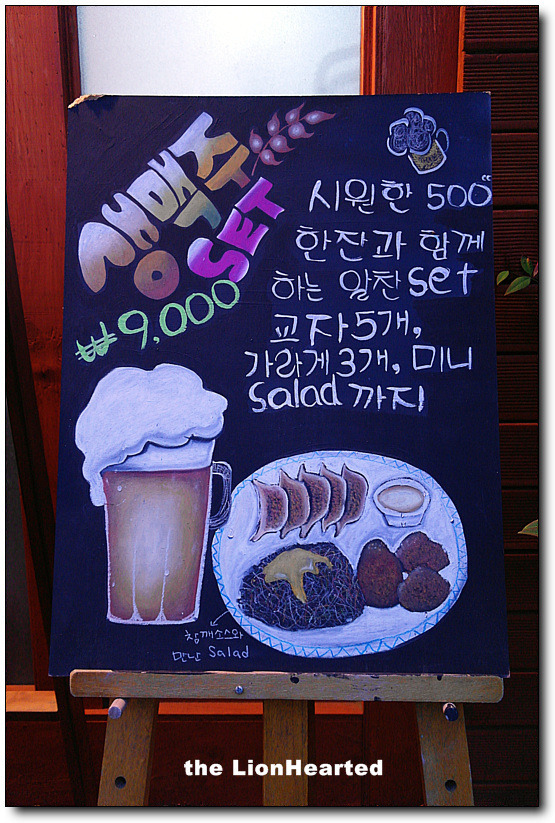 생맥주
SET
₩9,000
시원한 500cc
한잔과 함께
하는 알찬 set
교자5개,
가라게3개, 미니
salad 까지
참깨소스와
만난 salad
the LionHearted